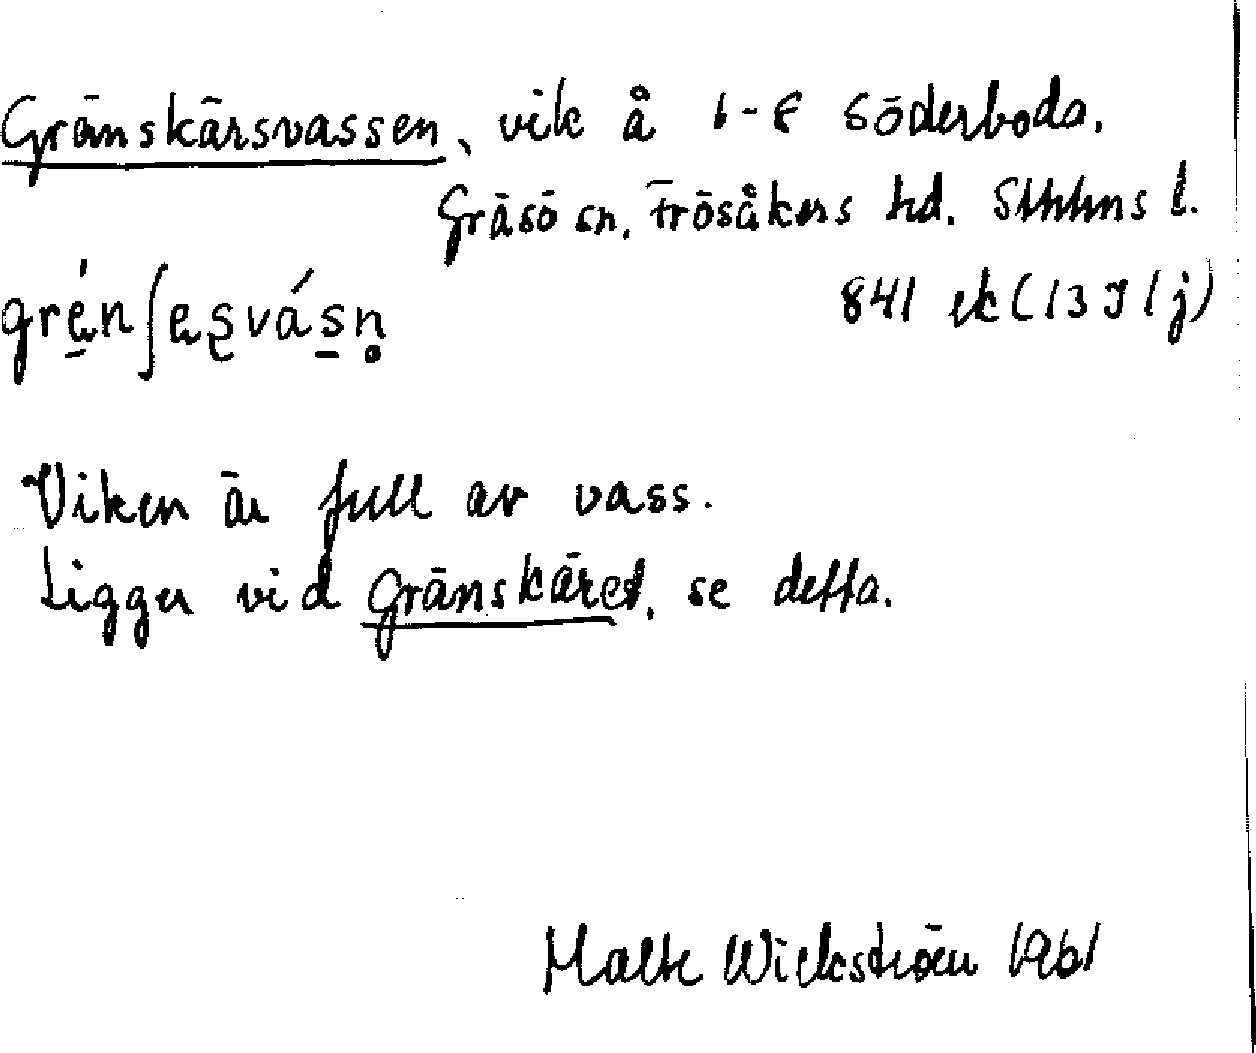 Gränskärsvassen, vik å 1-8 Söderboda,
Gräsö sn, Frösåkers hd. Sthlms l.
841 ek (13 I 1 j)
grén∫ęs̨vásn̥
Viken är full av vass.
Ligger vid Gränskäret, se detta.
Malte Wickström 1961